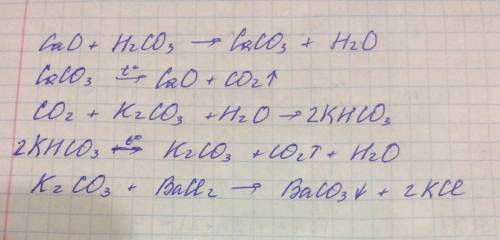 CaO + H₂CO₃ → CaCO₃ + H₂O
CaCO₃ t°→ CaO + CO₂↑
CO₂ + K₂CO₃ + H₂O → 2KHCO₃
2KHCO₃ t°⇌ K₂CO₃ + CO₂↑ + H₂O
K₂CO₃ + BaCl₂ → BaCO₃↓ + 2KCl